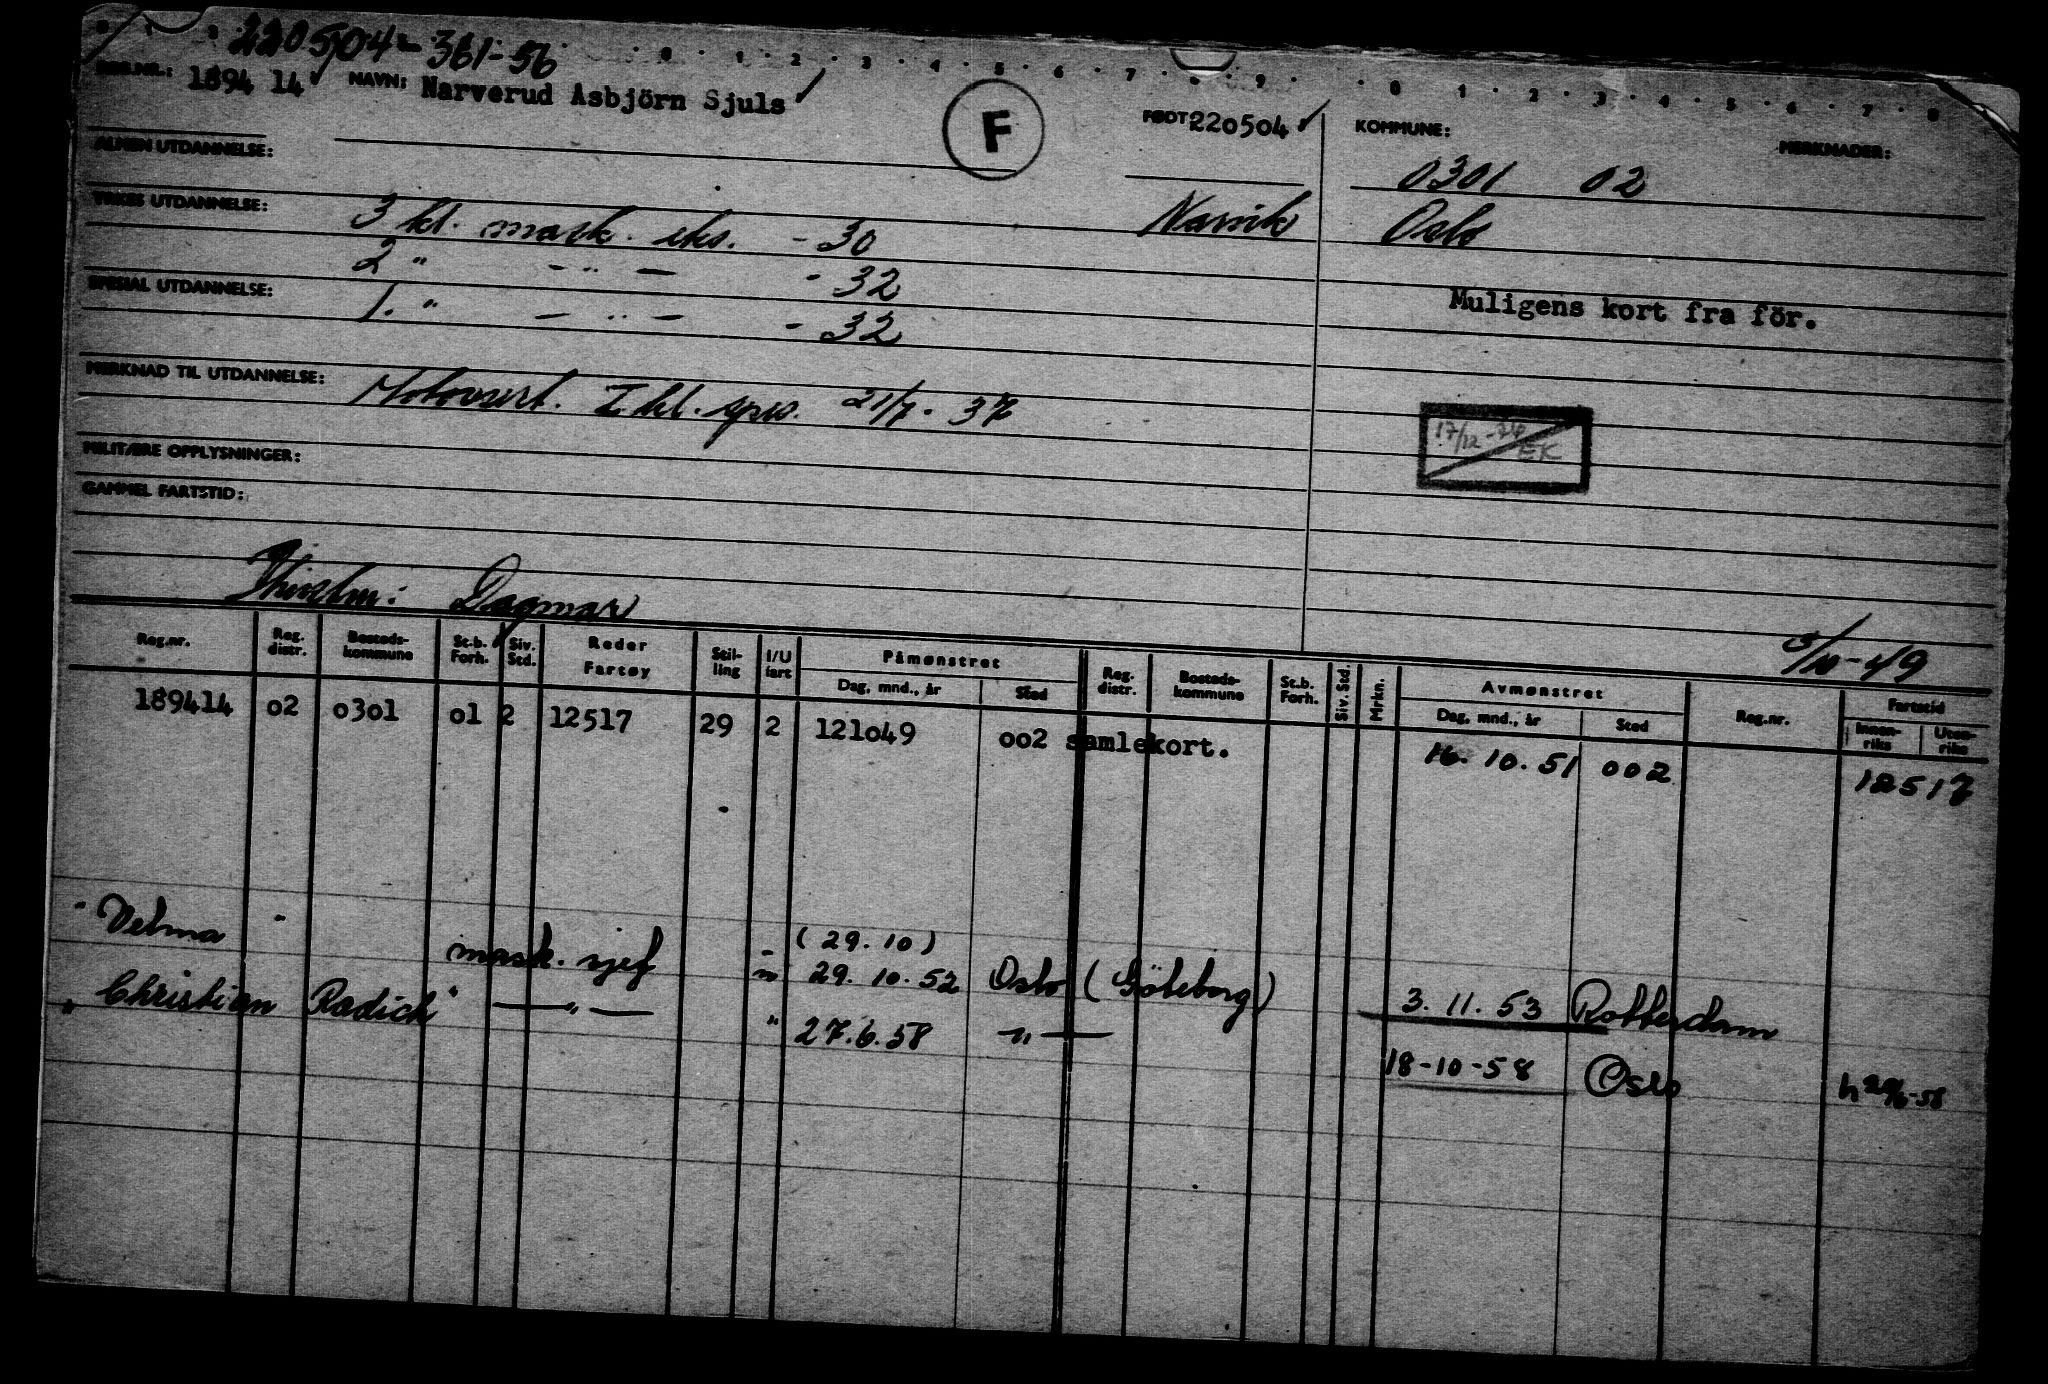 220504-361-56
0 · 1 · 2 · 3 · 4 · 5 · 6 · 7 · 8 · 9 · · 0 1 · 2 · 3 · 4 · 5 · 6 · 7 · 8
REG.NR.: 1894 14 NAVN: Narverud Asbjörn Sjuls F FØDT 220504 KOMMUNE: MERKNADER:
0301 02
ALMEN UTDANNELSE:
YRKES UTDANNELSE: 3 kl. mask. eks. - 30 Narvik Oslo
2 " - " - - 32
SPESIAL UTDANNELSE: 1. " - " - - 32
Muligens kort fra för.
MERKNAD TIL UTDANNELSE: Motorsert. I kl. 21/7 - 37
17/12 - 74 EK
MILITÆRE OPPLYSNINGER:
GAMMEL FARTSTID:
Dagmar
5/10-49
Reg.nr. Reg. distr. Bosteds-kommune St.b. Forh. Siv. Std. Reder Fartøy Stil-ling I/U fart Påmønstret Dag, mnd., år Sted Reg. distr. Bosteds-kommune St.b. Forh. Siv. Std. Mrkn. Avmønstret Dag, mnd., år Sted Reg.nr. Fartstid Innen-riks Uten-riks
189414 o2 o3o1 o1 2 12517 29 2 121o49 oo2 samlekort. 16.10.51 002 12517
(29.10)
" Velma " mask. sjef " 29.10.52 Oslo (Göteborg) 3.11.53 Rotterdam
" Christian Radich " — " — " 27.6.58 — " — 18-10-58 Oslo